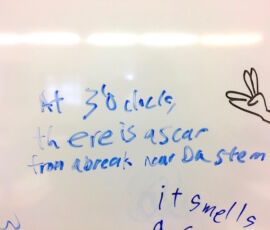 At 3'o clock,
there is a scar
from a break near Da stem
it smells